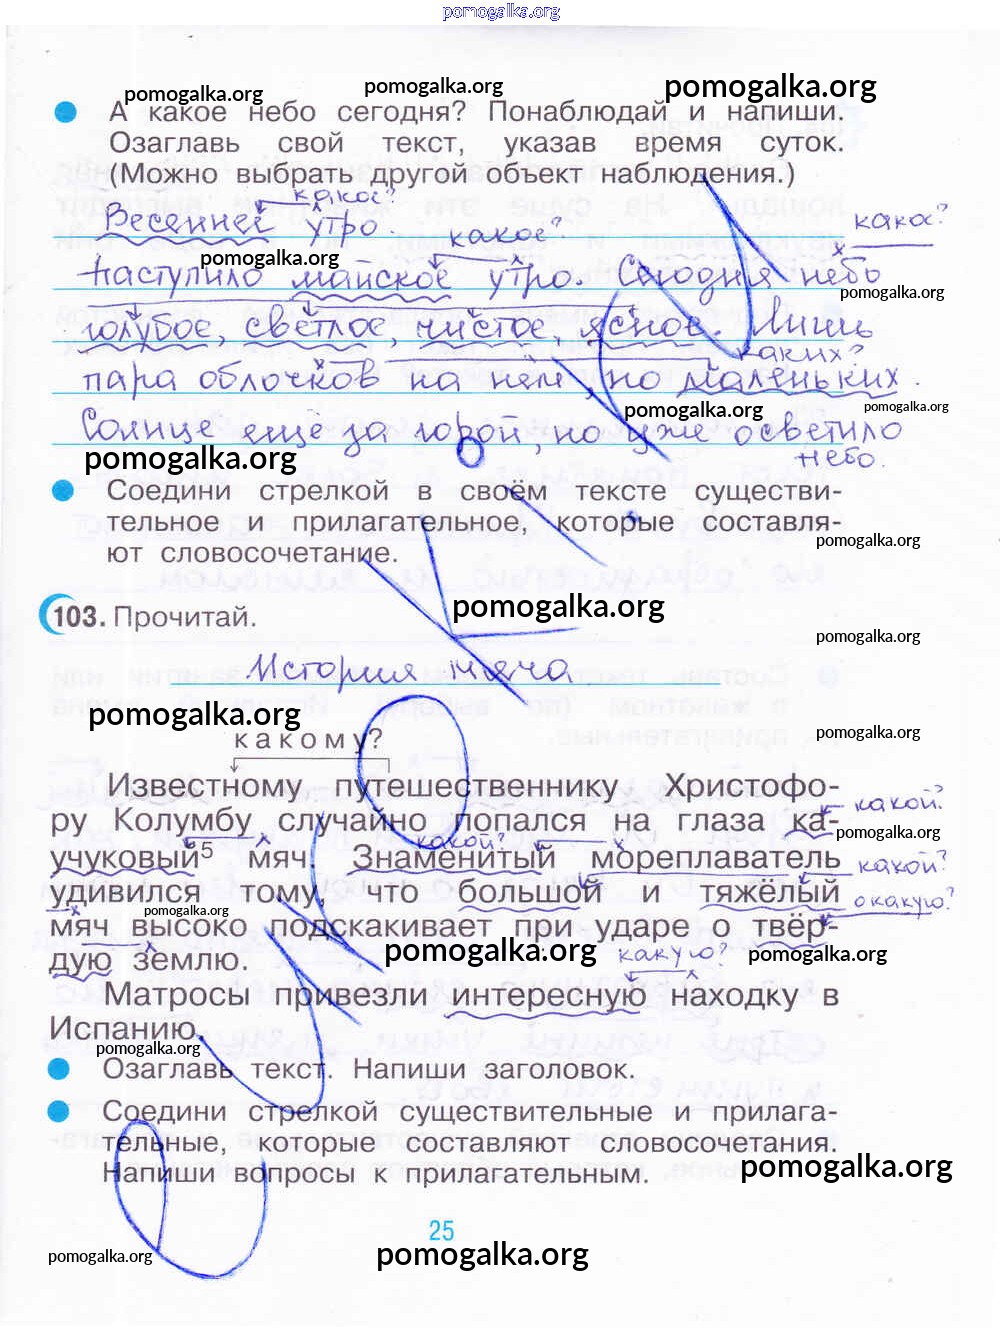 pomogalka.org
pomogalka.org pomogalka.org pomogalka.org
А какое небо сегодня? Понаблюдай и напиши.
Озаглавь свой текст, указав время суток.
(Можно выбрать другой объект наблюдения.)
какое?
Весеннее утро.
какое? какое?
pomogalka.org
Наступило майское утро. Сегодня небо
pomogalka.org
голубое, светлое, чистое, ясное. Лишь
каких?
пара облачков на нём, но маленьких.
pomogalka.org pomogalka.org
Солнце ещё за горой, но уже осветило
небо.
pomogalka.org
Соедини стрелкой в своём тексте существи-
тельное и прилагательное, которые составля-
ют словосочетание.
pomogalka.org
103. Прочитай.
pomogalka.org
pomogalka.org
История мяча
pomogalka.org
pomogalka.org
какому?
Известному путешественнику Христофо-
ру Колумбу случайно попался на глаза ка- какой?
pomogalka.org
какой?
учуковый5 мяч. Знаменитый мореплаватель какой?
удивился тому, что большой и тяжёлый о какую?
pomogalka.org
мяч высоко подскакивает при ударе о твёр-
pomogalka.org какую? pomogalka.org
дую землю.
Матросы привезли интересную находку в
Испанию.
pomogalka.org
Озаглавь текст. Напиши заголовок.
Соедини стрелкой существительные и прилага-
тельные, которые составляют словосочетания.
Напиши вопросы к прилагательным.
pomogalka.org
25
pomogalka.org pomogalka.org